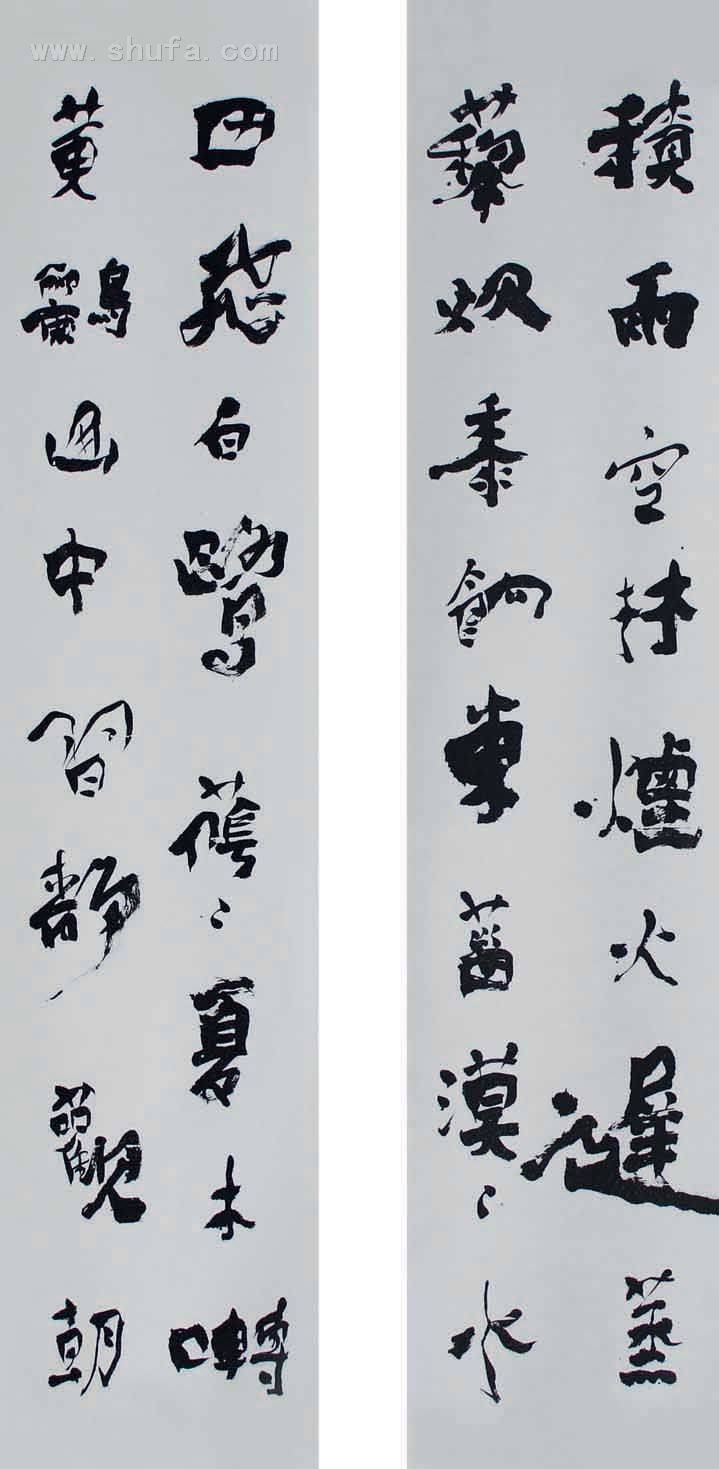 www.shufa.com
積雨空林煙火遲蒸
藜炊黍餉東菑漠〻水
田飛白鷺蔭〻夏木囀
黃鸝山中習靜觀朝